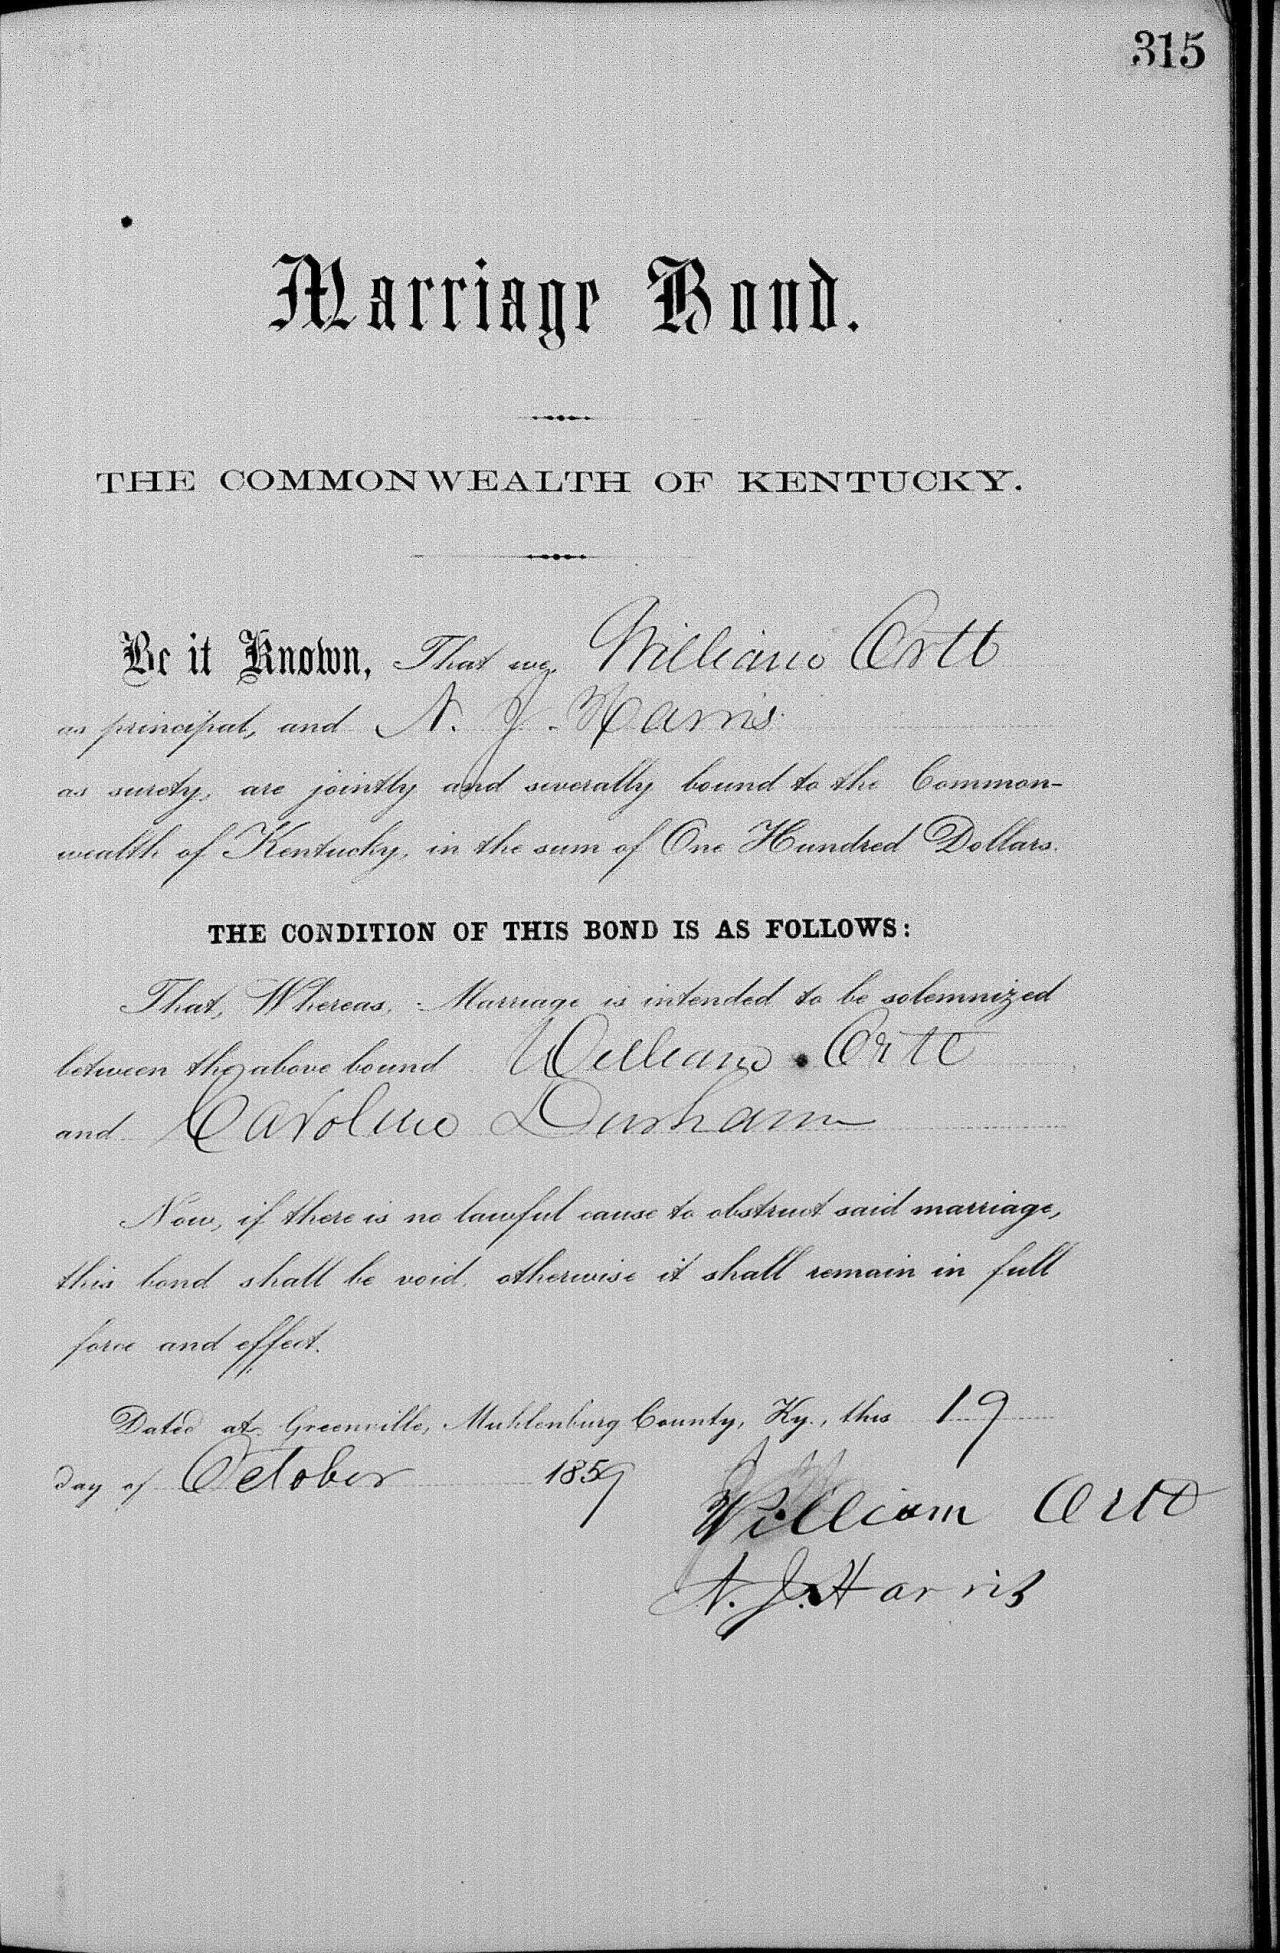 315
Marriage Bond.
THE COMMONWEALTH OF KENTUCKY.
Be it Known, That we, William Ortt
as principal, and N. J. Harris
as surety, are jointly and severally bound to the Common-
wealth of Kentucky, in the sum of One Hundred Dollars.
THE CONDITION OF THIS BOND IS AS FOLLOWS:
That, Whereas, Marriage is intended to be solemnized
between the above bound William Ortt
and Caroline Durham
Now, if there is no lawful cause to obstruct said marriage,
this bond shall be void, otherwise it shall remain in full
force and effect.
Dated at Greenville, Muhlenburg County, Ky., this 19
day of October 1859
William Ortt
N. J. Harris